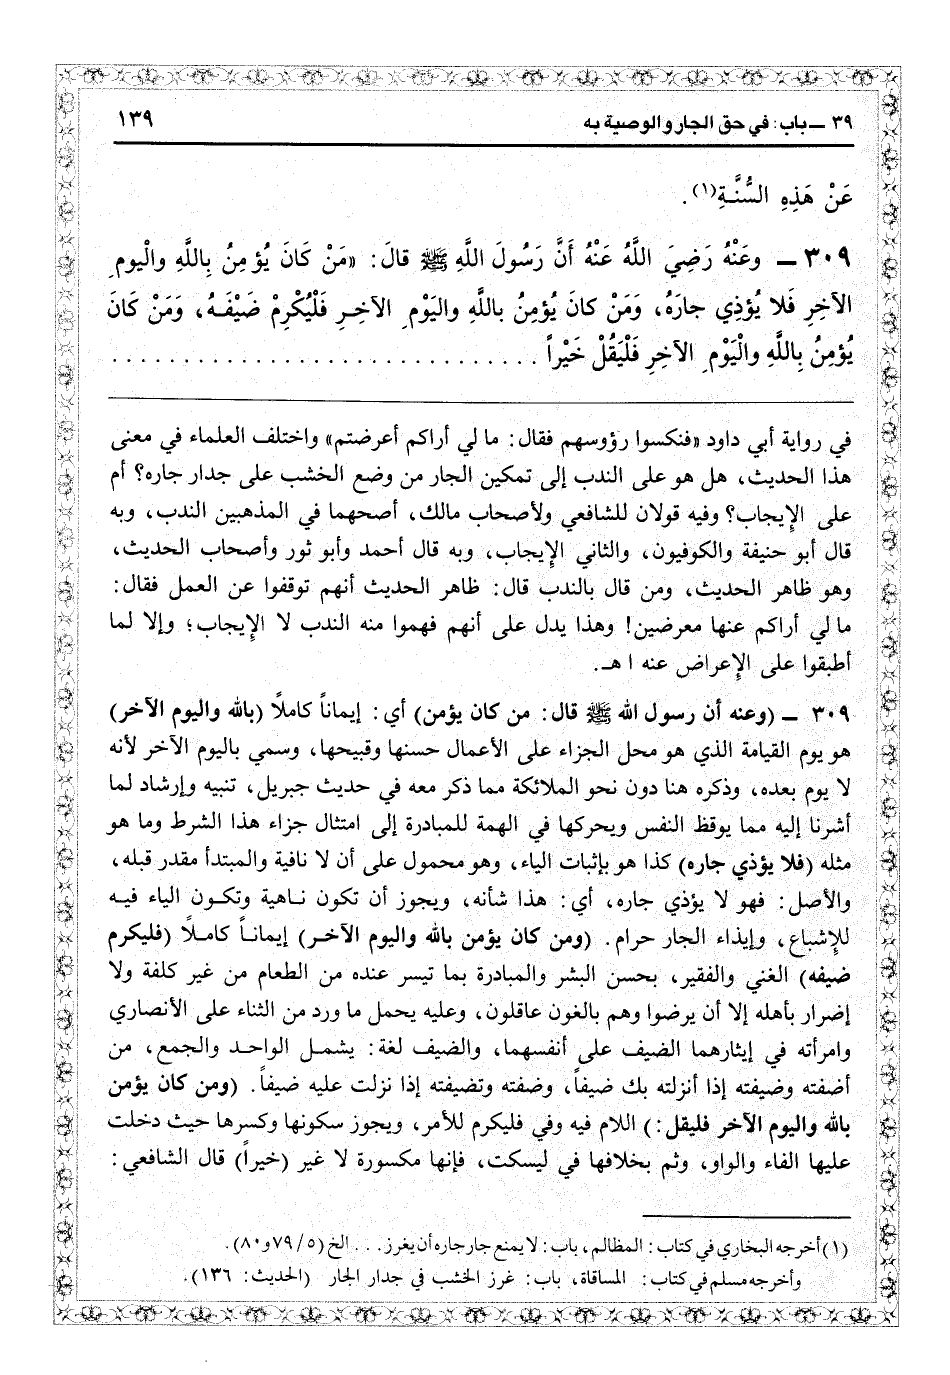 ٣٩ ــ باب: في حق الجار والوصية به ١٣٩
عَنْ هَذِهِ السُّنَّةِ(١).
٣٠٩ ــ وعَنْهُ رَضِيَ اللَّهُ عَنْهُ أَنَّ رَسُولَ اللَّهِ ﷺ قالَ: «مَنْ كَانَ يُؤمِنُ بِاللَّهِ والْيومِ
الآخِرِ فَلا يُؤذِي جارَهُ، وَمَنْ كانَ يُؤْمِنُ باللَّهِ واليَوْمِ الآخِرِ فَلْيُكْرِمْ ضَيْفَهُ، وَمَنْ كَانَ
يُؤمِنُ بِاللَّهِ والْيَوْمِ الآخِرِ فَلْيَقُلْ خَيْراً . . . . . . . . . . . . . . . . . . . . . . . . . . . . . .
في رواية أبي داود «فنكسوا رؤوسهم فقال: ما لي أراكم أعرضتم» واختلف العلماء في معنى
هذا الحديث، هل هو على الندب إلى تمكين الجار من وضع الخشب على جدار جاره؟ أم
على الإيجاب؟ وفيه قولان للشافعي ولأصحاب مالك، أصحهما في المذهبين الندب، وبه
قال أبو حنيفة والكوفيون، والثاني الإيجاب، وبه قال أحمد وأبو ثور وأصحاب الحديث،
وهو ظاهر الحديث، ومن قال بالندب قال: ظاهر الحديث أنهم توقفوا عن العمل فقال:
ما لي أراكم عنها معرضين! وهذا يدل على أنهم فهموا منه الندب لا الإيجاب؛ وإلا لما
أطبقوا على الإعراض عنه ا هـ.
٣٠٩ ــ (وعنه أن رسول الله ﷺ قال: من كان يؤمن) أي: إيماناً كاملاً (بالله واليوم الآخر)
هو يوم القيامة الذي هو محل الجزاء على الأعمال حسنها وقبيحها، وسمي باليوم الآخر لأنه
لا يوم بعده، وذكره هنا دون نحو الملائكة مما ذكر معه في حديث جبريل، تنبيه وإرشاد لما
أشرنا إليه مما يوقظ النفس ويحركها في الهمة للمبادرة إلى امتثال جزاء هذا الشرط وما هو
مثله (فلا يؤذي جاره) كذا هو بإثبات الياء، وهو محمول على أن لا نافية والمبتدأ مقدر قبله،
والأصل: فهو لا يؤذي جاره، أي: هذا شأنه، ويجوز أن تكون ناهية وتكون الياء فيه
للإشباع، وإيذاء الجار حرام. (ومن كان يؤمن بالله واليوم الآخر) إيماناً كاملاً (فليكرم
ضيفه) الغني والفقير، بحسن البشر والمبادرة بما تيسر عنده من الطعام من غير كلفة ولا
إضرار بأهله إلا أن يرضوا وهم بالغون عاقلون، وعليه يحمل ما ورد من الثناء على الأنصاري
وامرأته في إيثارهما الضيف على أنفسهما، والضيف لغة: يشمل الواحد والجمع، من
أضفته وضيفته إذا أنزلته بك ضيفاً، وضفته وتضيفته إذا نزلت عليه ضيفاً. (ومن كان يؤمن
بالله واليوم الآخر فليقل:) اللام فيه وفي فليكرم للأمر، ويجوز سكونها وكسرها حيث دخلت
عليها الفاء والواو، وثم بخلافها في ليسكت، فإنها مكسورة لا غير (خيراً) قال الشافعي:
(١) أخرجه البخاري في كتاب: المظالم، باب: لا يمنع جار جاره أن يغرز. . . الخ (٥/ ٧٩ و٨٠).
وأخرجه مسلم في كتاب: المساقاة، باب: غرز الخشب في جدار الجار (الحديث: ١٣٦).